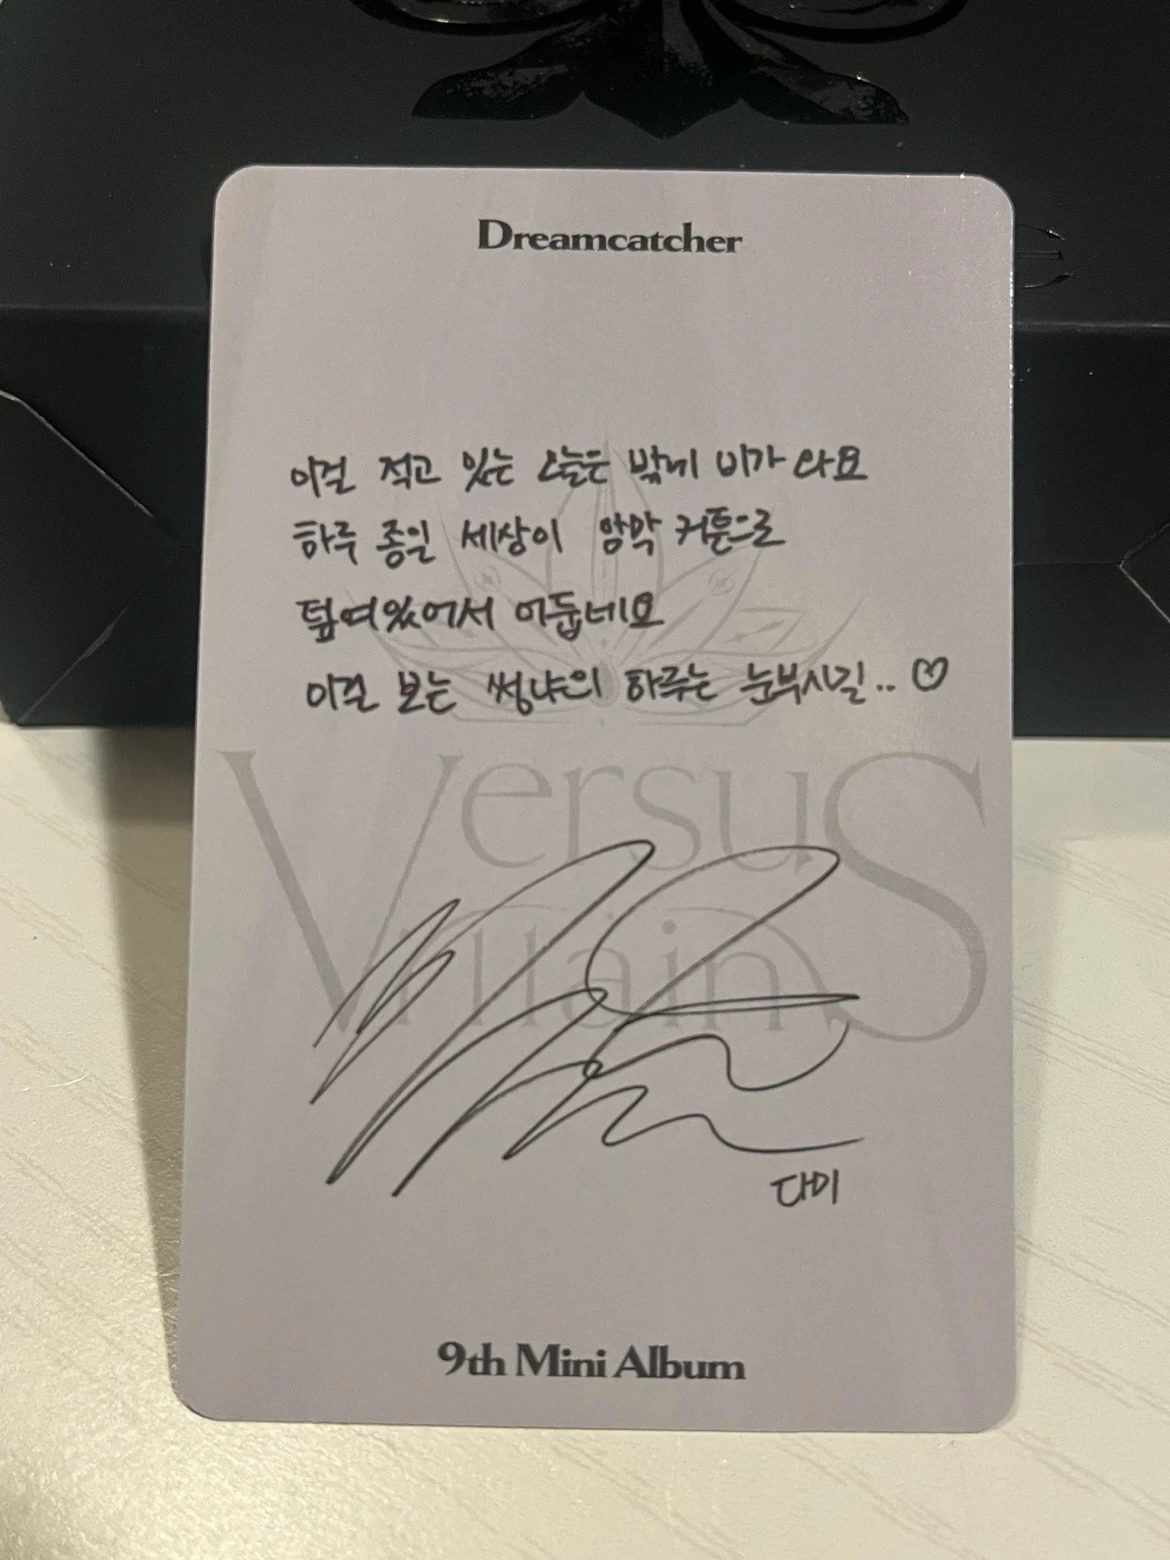 Dreamcatcher
이걸 적고 있는 오늘은 밖에 비가 와요
하루 종일 세상이 암막 커튼으로
덮여있어서 어둡네요
이걸 보는 썸냐의 하루는 눈부시길.. ♡
Versus
Villain
다미
9th Mini Album